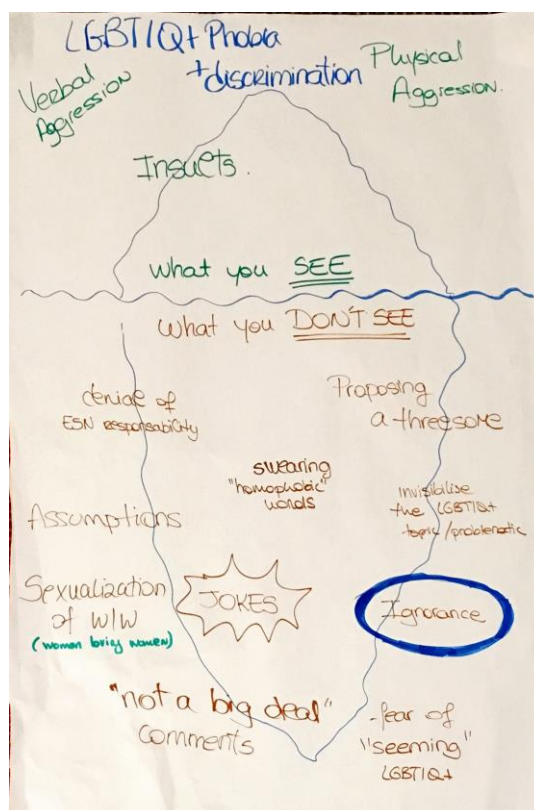 LGBTIQ+ Phobia
+discrimination
Verbal
Aggression
Physical
Aggression.
Insults.
What you SEE
What you DON'T SEE
denial of
ESN responsability
Proposing
a threesome
swearing
"homophobic"
words
invisibilise
the LGBTIQ+
topic/problematic
Assumptions
Sexualization
of W/W
(women loving women)
JOKES
Ignorance
"not a big deal"
comments
-fear of
"seeming"
LGBTIQ+